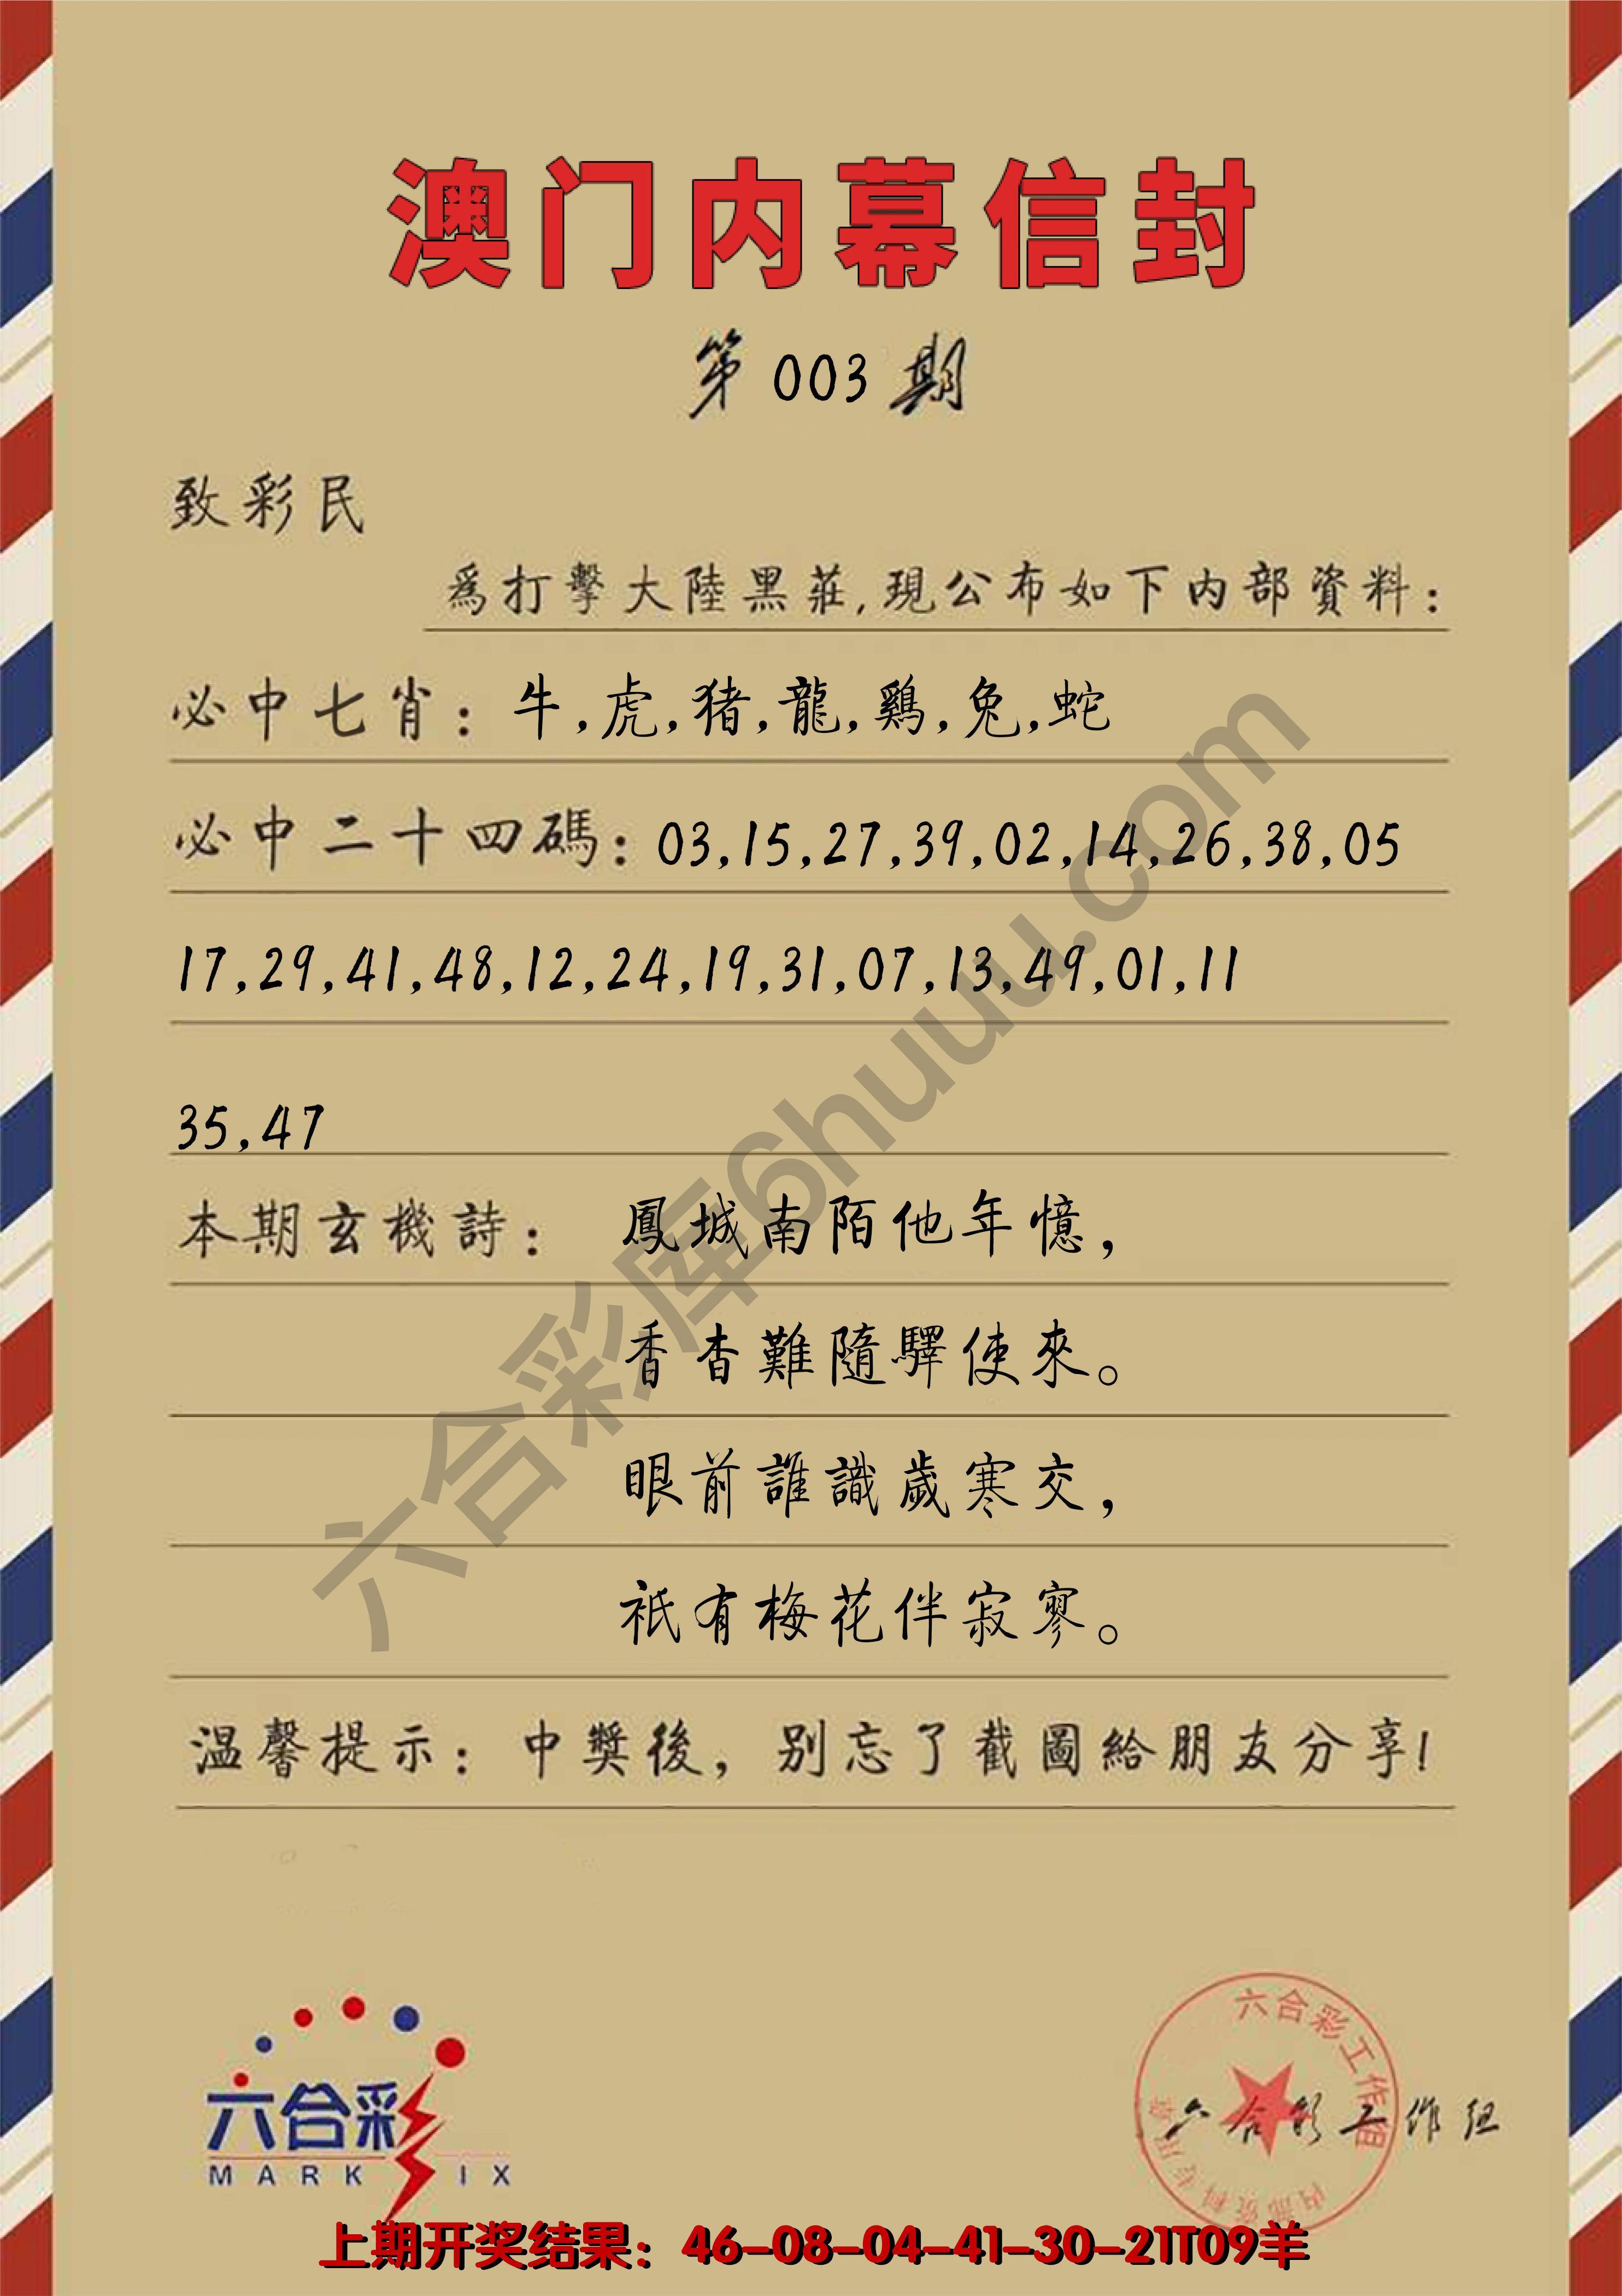 澳门内幕信封
第003期
致彩民
爲打擊大陸黑莊,現公布如下内部資料:
必中七肖: 牛,虎,猪,龍,鷄,兔,蛇
必中二十四碼: 03,15,27,39,02,14,26,38,05
17,29,41,48,12,24,19,31,07,13,49,01,11
35,47
本期玄機詩: 鳳城南陌他年憶,
香杳難隨驛使來。
眼前誰識歲寒交,
衹有梅花伴寂寥。
温馨提示: 中獎後, 别忘了截圖給朋友分享!
六合彩库6huuu.com
六合彩
MARK IX
六合彩工作组
内部资料专用章
六合彩工作组
上期开奖结果: 46-08-04-41-30-21T09羊